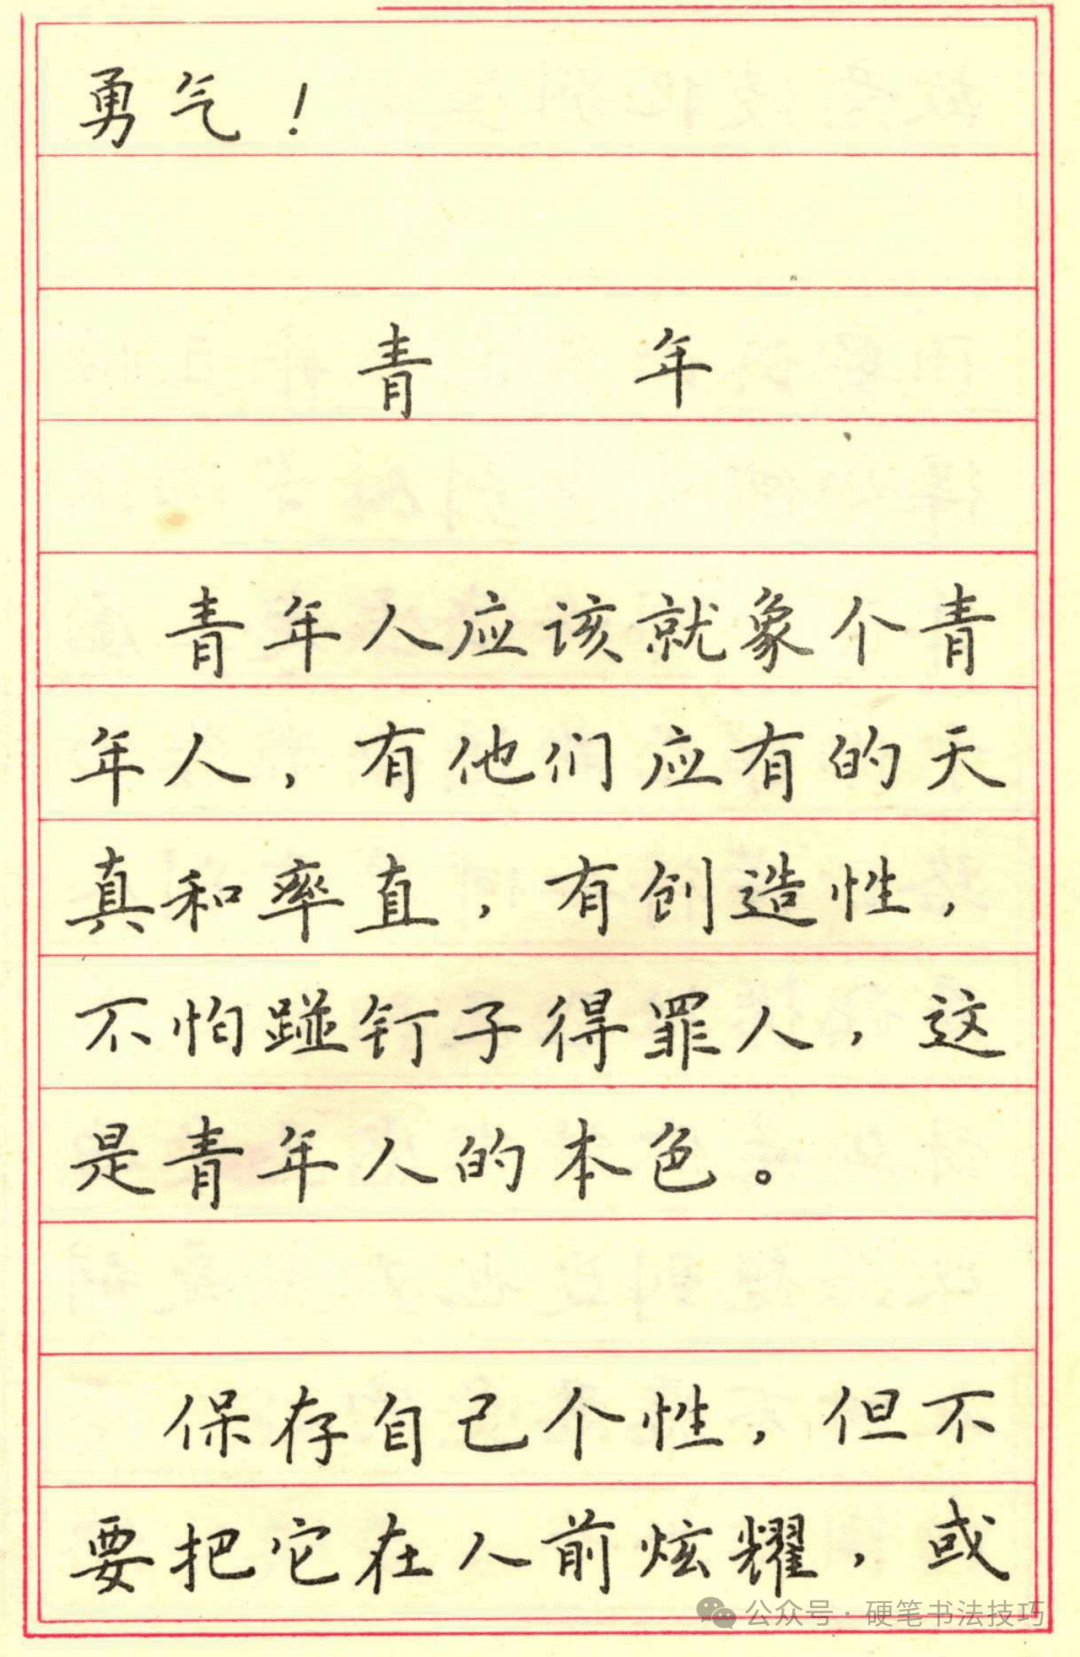 勇气！
青年
青年人应该就象个青
年人，有他们应有的天
真和率直，有创造性，
不怕踫钉子得罪人，这
是青年人的本色。
保存自己个性，但不
要把它在人前炫耀，或
公众号·硬笔书法技巧